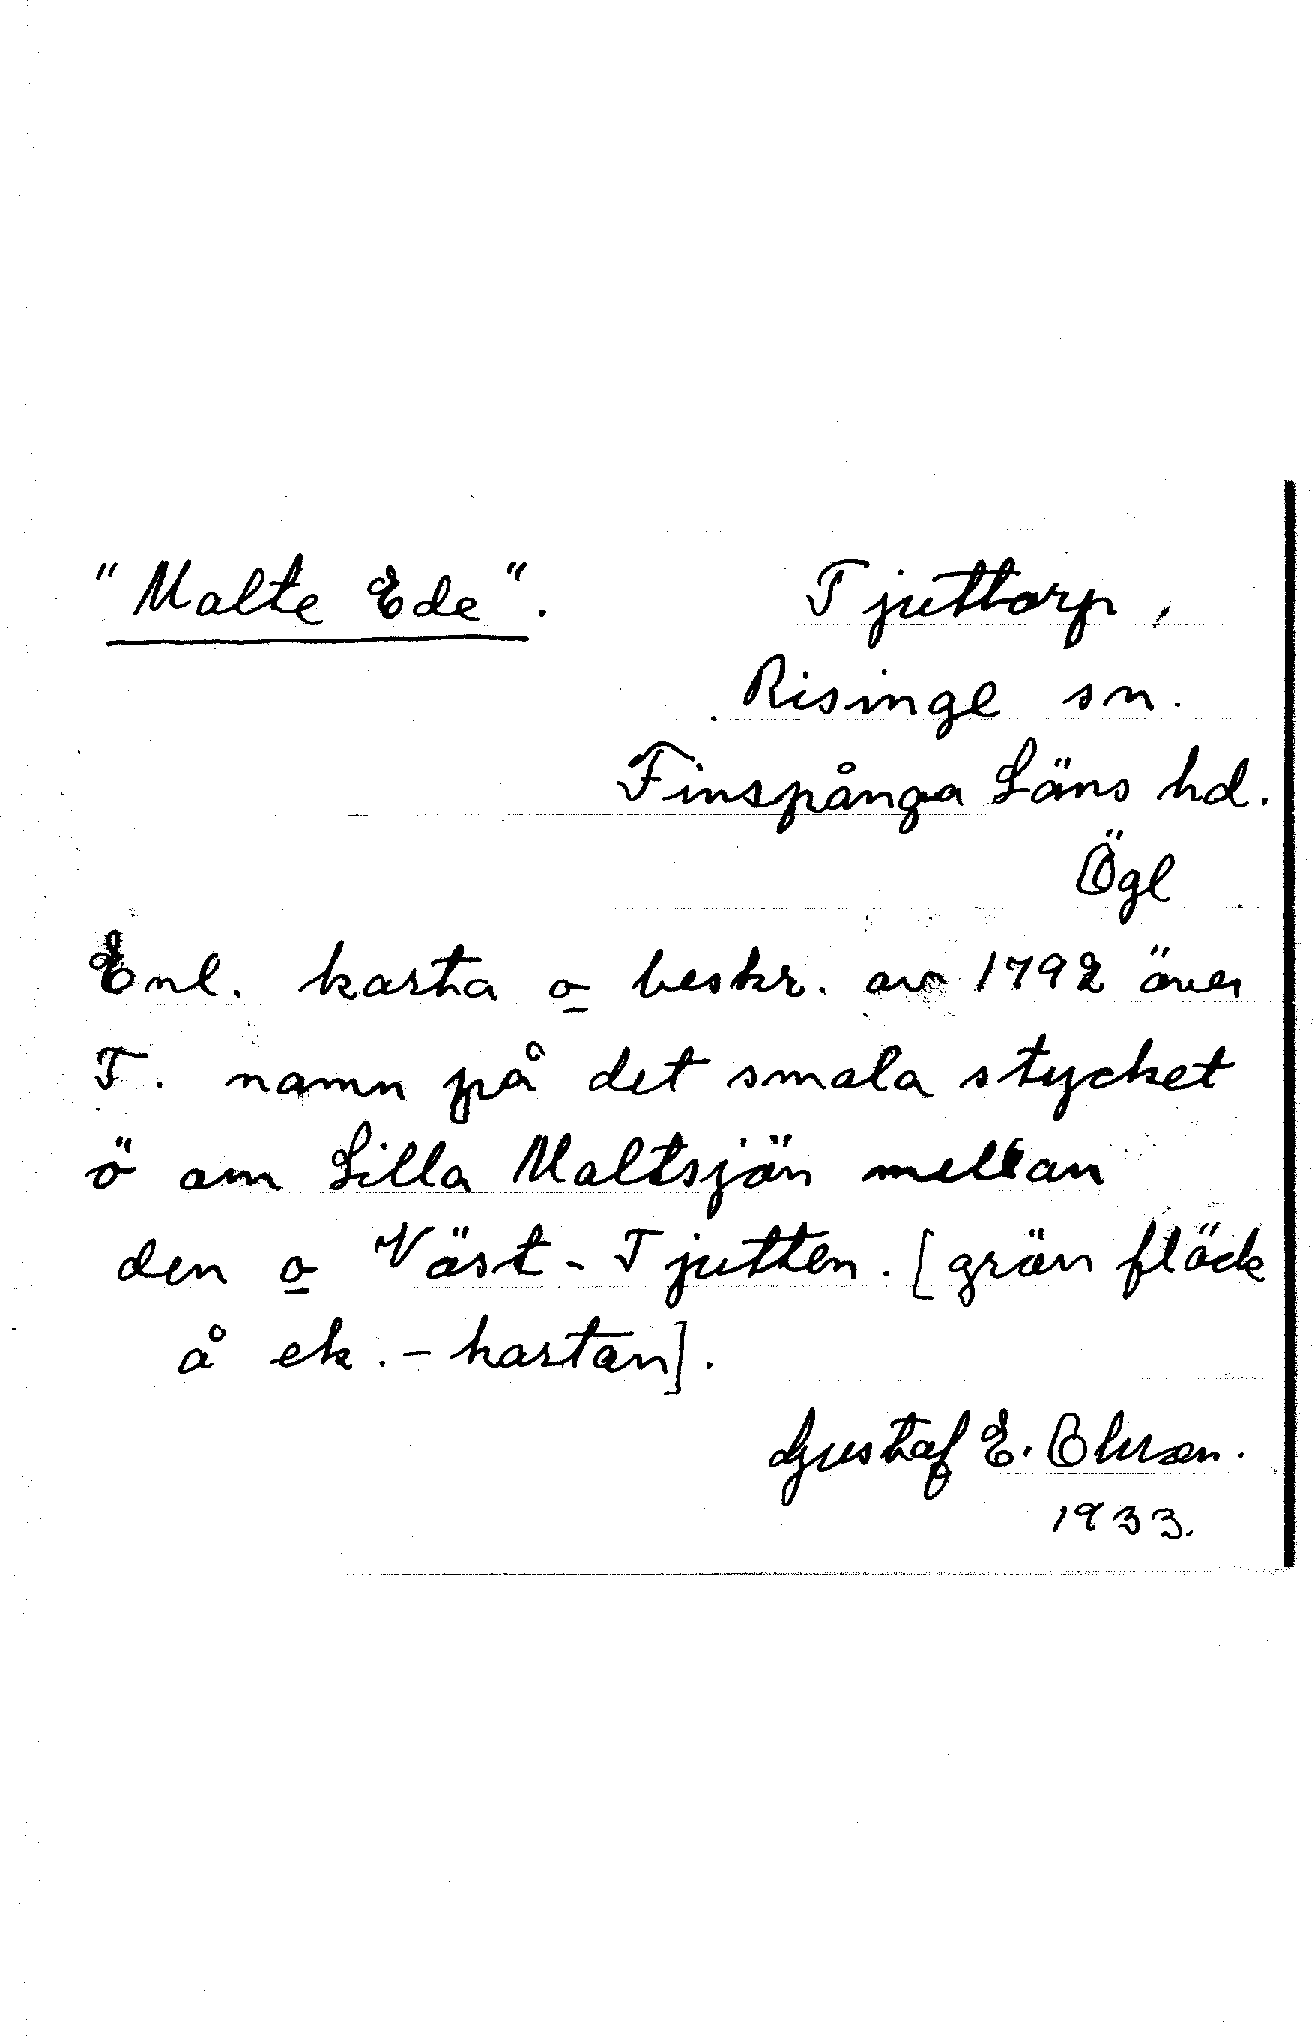 "Malte Ede". Tjuttorp,
Risinge sn.
Finspånga Läns hd.
Ögl
Enl. karta o beskr. av 1792 över
T. namn på det smala stycket
ö om Lilla Maltsjön mellan
den o Väst-Tjutten. [grön fläck
å ek.-kartan].
Gustaf E.
1933.